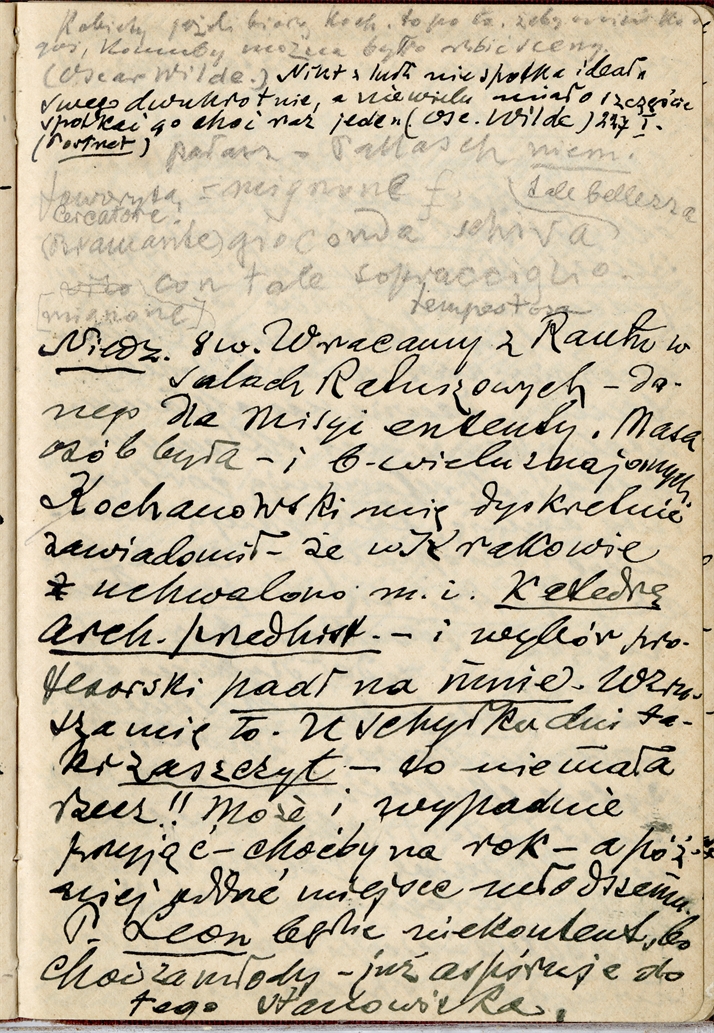 Kobiety jeżeli biorą koch. to po to, żeby
komuby można było robić sceny.
(Oscar Wilde.) Nikt z ludzi nie spotka ideału
swego dwukrotnie, a niewielu miało szczęście
spotkać go choć raz jeden (Osc. Wilde) 227 I.
(Portret)
pałasz – Pallasch niem.
faworyta = mignonne f. tale bellezza
cercatore!
(Bramante) gioconda schiva
con tale sopracciglio.
[mignone] tempestosa
Niedz. 8 w. Wracamy z Rautu w
salach Ratuszowych – da-
nego dla Misyi ententy. Masa
osób była – i b. wielu znajomych
Kochanowski mię dyskretnie
zawiadomił – że w Krakowie
uchwalono m. i. Katedrę
arch. przedhist. – i wybór pro-
fesorski padł na mnie. Wzru-
sza mię to. U schyłku dni ta-
ki zaszczyt – to nie mała
rzecz!! Może i wypadnie
przyjąć – choćby na rok – a póź-
niej oddać miejsce młodszemu.
P. Leon będzie niekontent, bo
choć za młody – już aspiruje do
tego stanowiska.